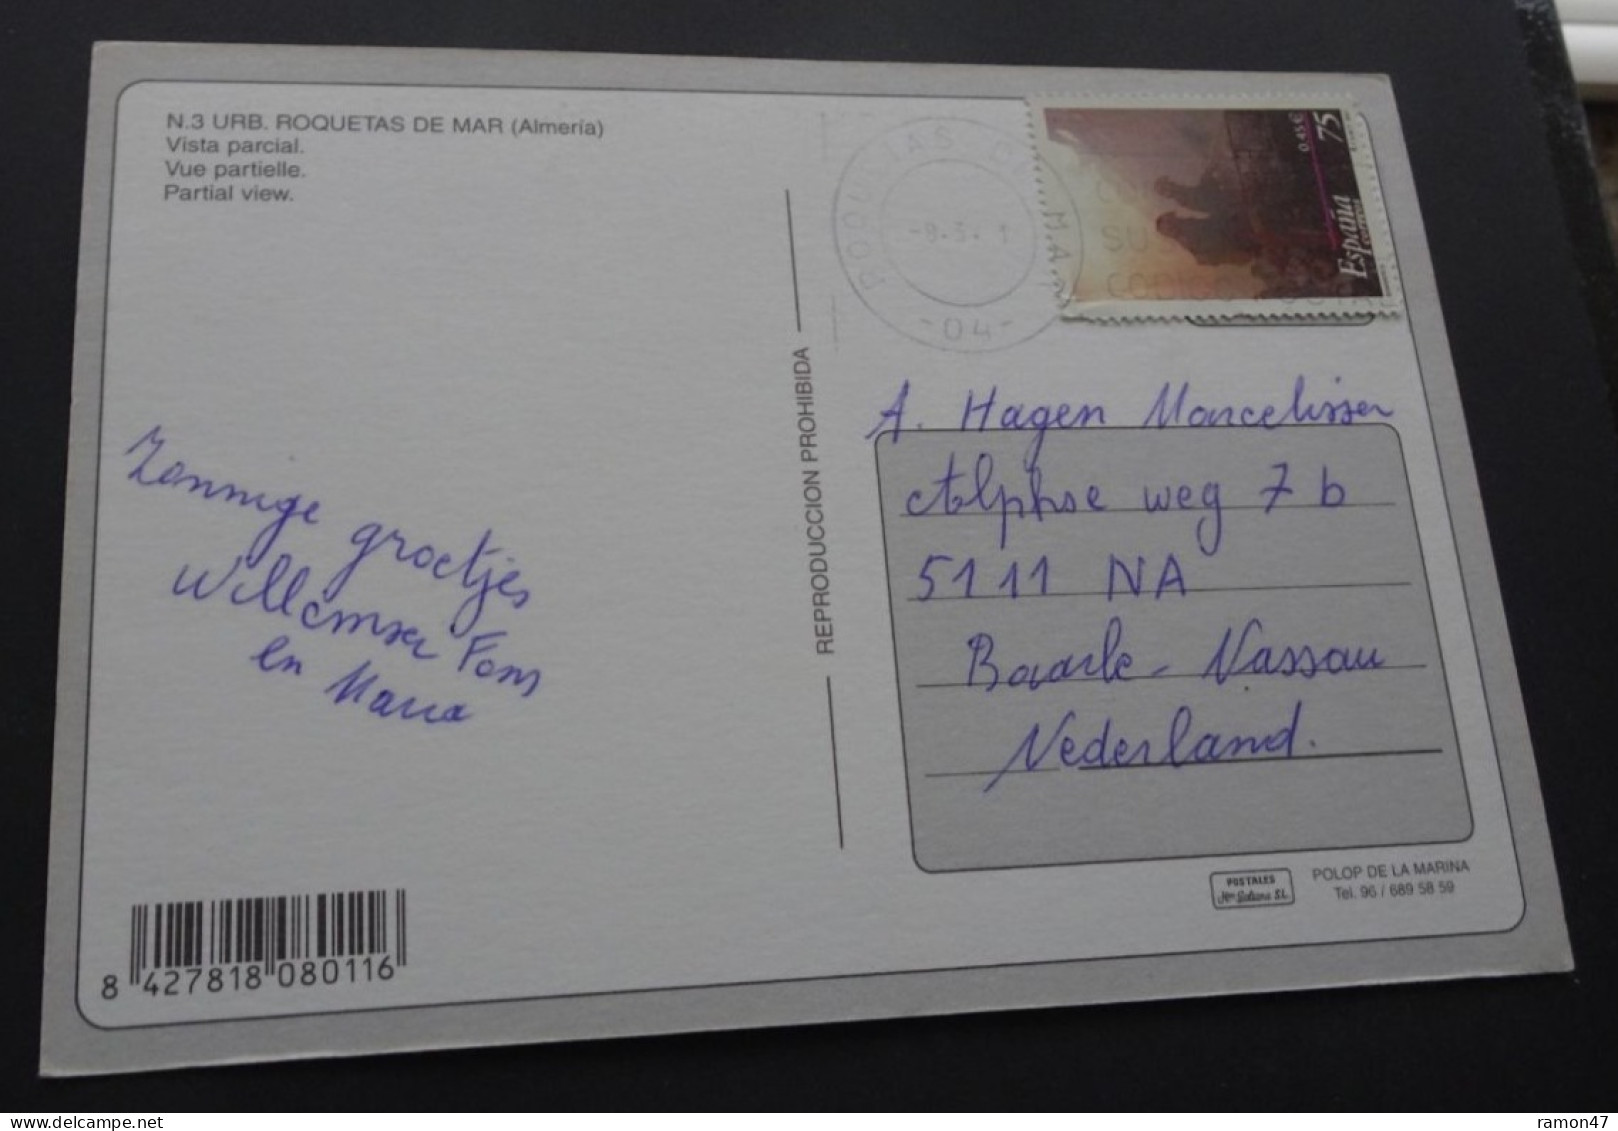 N.3 URB. ROQUETAS DE MAR (Almería)
Vista parcial.
Vue partielle.
Partial view.
Zonnige groetjes
Willemsen Fons
en Maria
8 427818 080116
REPRODUCCION PROHIBIDA
ROQUETAS DE MAR
-8.3. 1
-04-
SU
CODIGO
0.45€ 75
España
CORREOS
A. Hagen Marcelissen
Alphse weg 7 b
5111 NA
Baarle - Nassau
Nederland.
POSTALES
Hnos Galiana S.L.
POLOP DE LA MARINA
Tel. 96 / 689 58 59
delcampe.net
ramon47